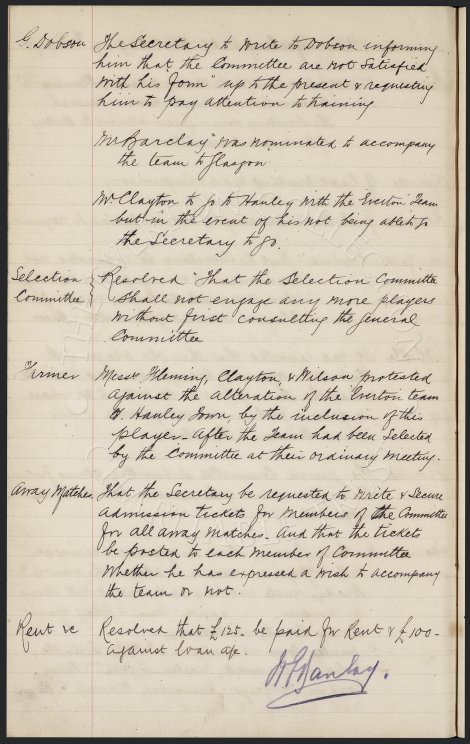 G. Dobson The Secretary to write to Dobson informing
him that the Committee are not satisfied
with his form" up to the present & requesting
him to pay attention to training
Mr Barclay" was nominated to accompany
the team to Glasgow
Mr Clayton to go to Hanley with the Everton Team
but in the event of his not being able to go
the Secretary to go.
Selection Committee } Resolved "That the Selection Committee
shall not engage any more players
without first consulting the general
Committee
Messrs Fleming, Clayton, & Wilson protested
against the alteration of the Everton team
v. Hanley Town, by the inclusion of this
player - After the Team had been selected
by the Committee at their ordinary meeting.
Away Matches. That the Secretary be requested to write & secure
admission tickets for members of the Committee
for all away matches. And that the tickets
be posted to each member of Committee
whether he has expressed a wish to accompany
the team or not.
Rent &c Resolved that £125- be paid for Rent & £100-
against loan a/c.